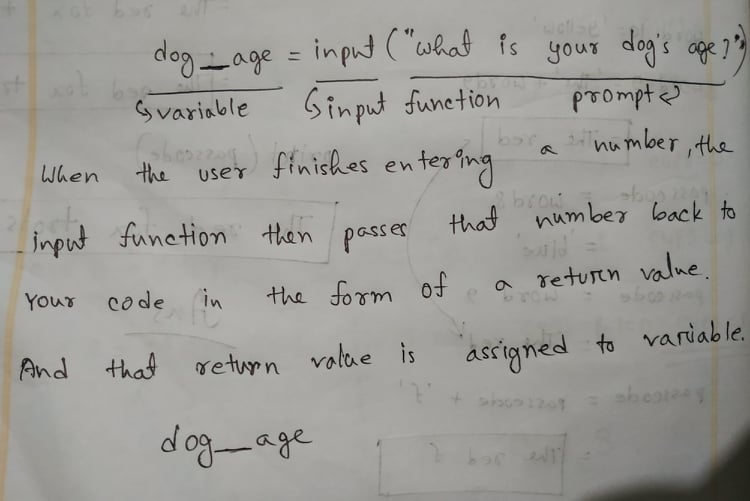 dog_age = input ("what is your dog's age?")
↳ variable ↳ input function prompt ↲
When the user finishes entering a number, the
input function then passes that number back to
Your code in the form of a return value.
And that return value is assigned to variable.
dog_age